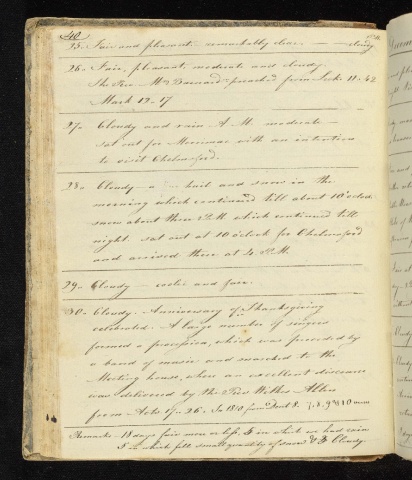 40
25. Fair and pleasant remarkably clear. — cloudy
26. Fair, pleasant, moderate and cloudy.
The Rev. Mr Barnard preached from Luk. 11. 42
Mark 12. 17
27. Cloudy and rain A.M. moderate —
sat out for Merrimac with an intention
to visit Chelmsford.
28. Cloudy — a hail and snow in the
morning which continued till about 10 o'clock
snow about three P.M. which continued till
night. sat out at 10 o'clock for Chelmsford
and arrived there at 4 P.M.
29. Cloudy cool and fair.
30. Cloudy. Anniversary of Thanksgiving
celebrated. A large number of singers
formed a procession, which was preceded by
a band of music and marched to the
Meeting house, when an excellent discourse
was delivered by the Rev. Wilkes Allen
from Acts 17. 26. In 1810 from Deut 8. 7, 8, 9 & 10
Remarks. 18 days fair more or less, 5 in which we had rain
5 in which fell small quantity of snow & 3 Cloudy.